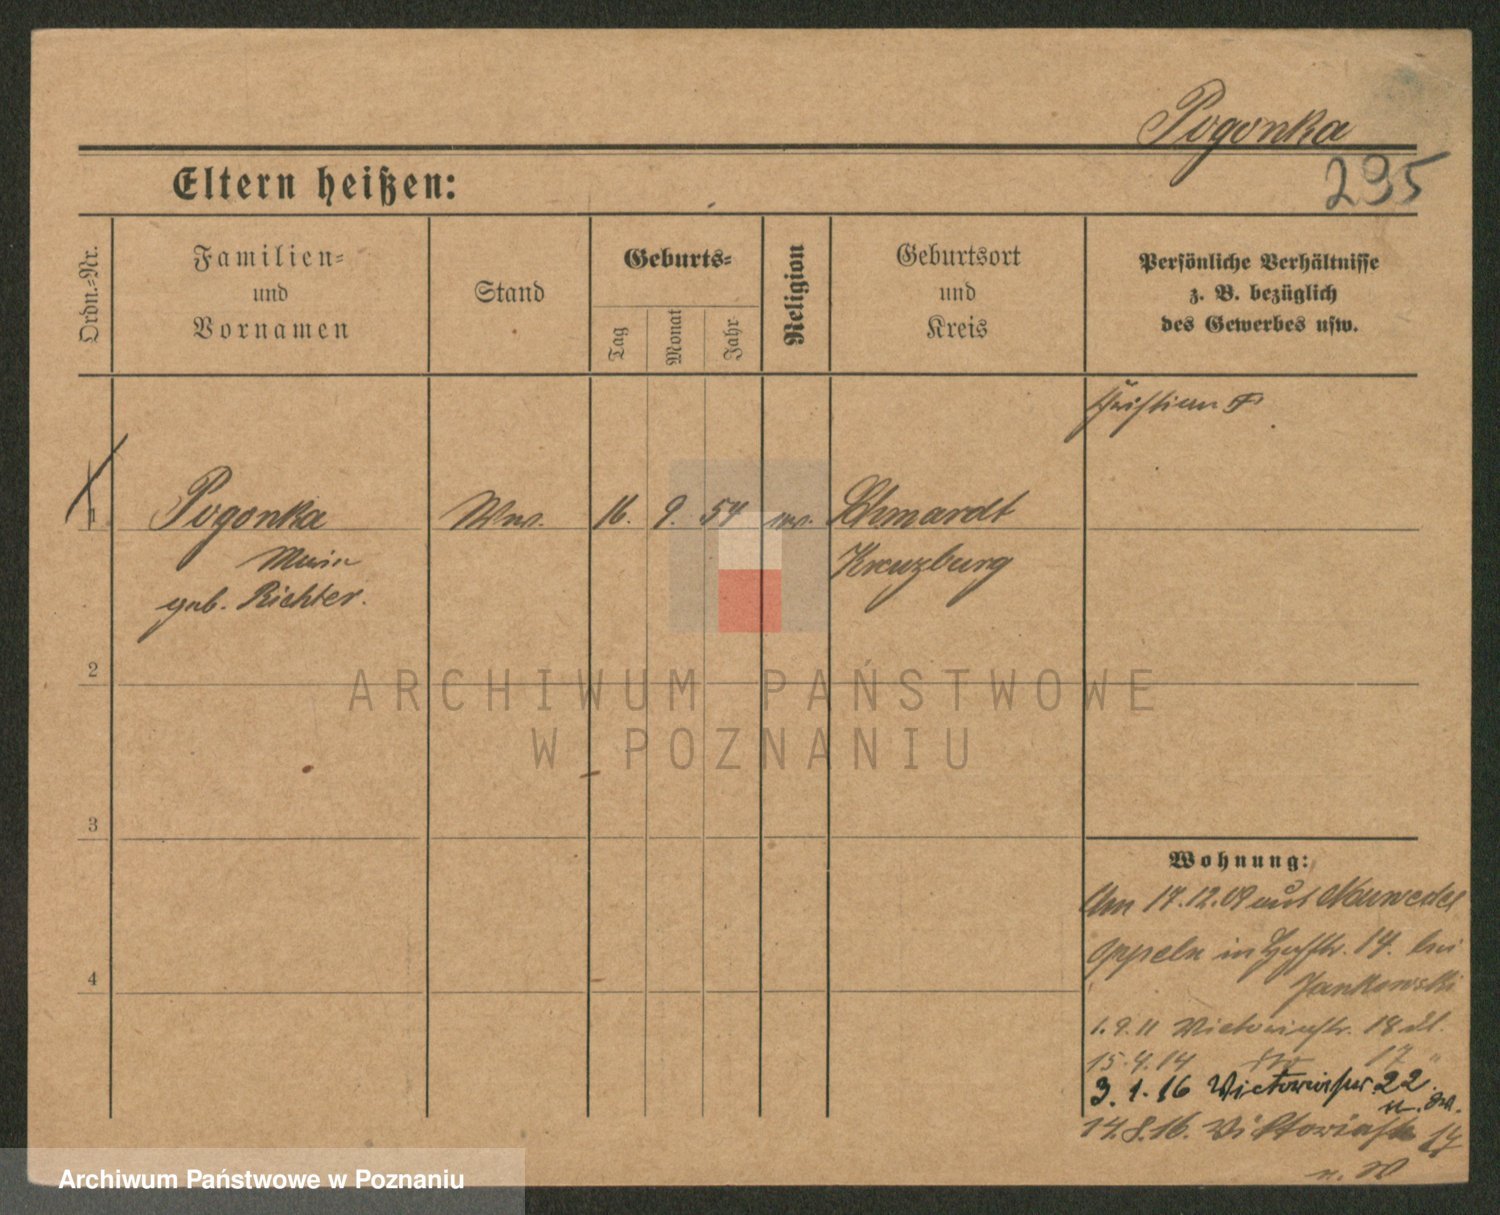 Pogonka
295
Eltern heißen:
Ordn.-Nr.
Familien-
und
Vornamen
Stand
Geburts-
Tag
Monat
Jahr
Religion
Geburtsort
und
Kreis
Persönliche Verhältnisse
z. B. bezüglich
des Gewerbes usw.
Christian
1
Pogonka
Ww.
16.
9.
54
Schmardt
Marie
Kreuzburg
geb. Richter.
2
3
4
ARCHIWUM PAŃSTWOWE
W POZNANIU
Wohnung:
Am 17.12.09 aus Neuwedel
Oppeln in 14. bei
Jankowski
1.9.11 Victoriastr. 18
15.4.14 17 "
3.1.16 Victoriastr. 22.
14.8.16. Viktoriastr 17
Archiwum Państwowe w Poznaniu